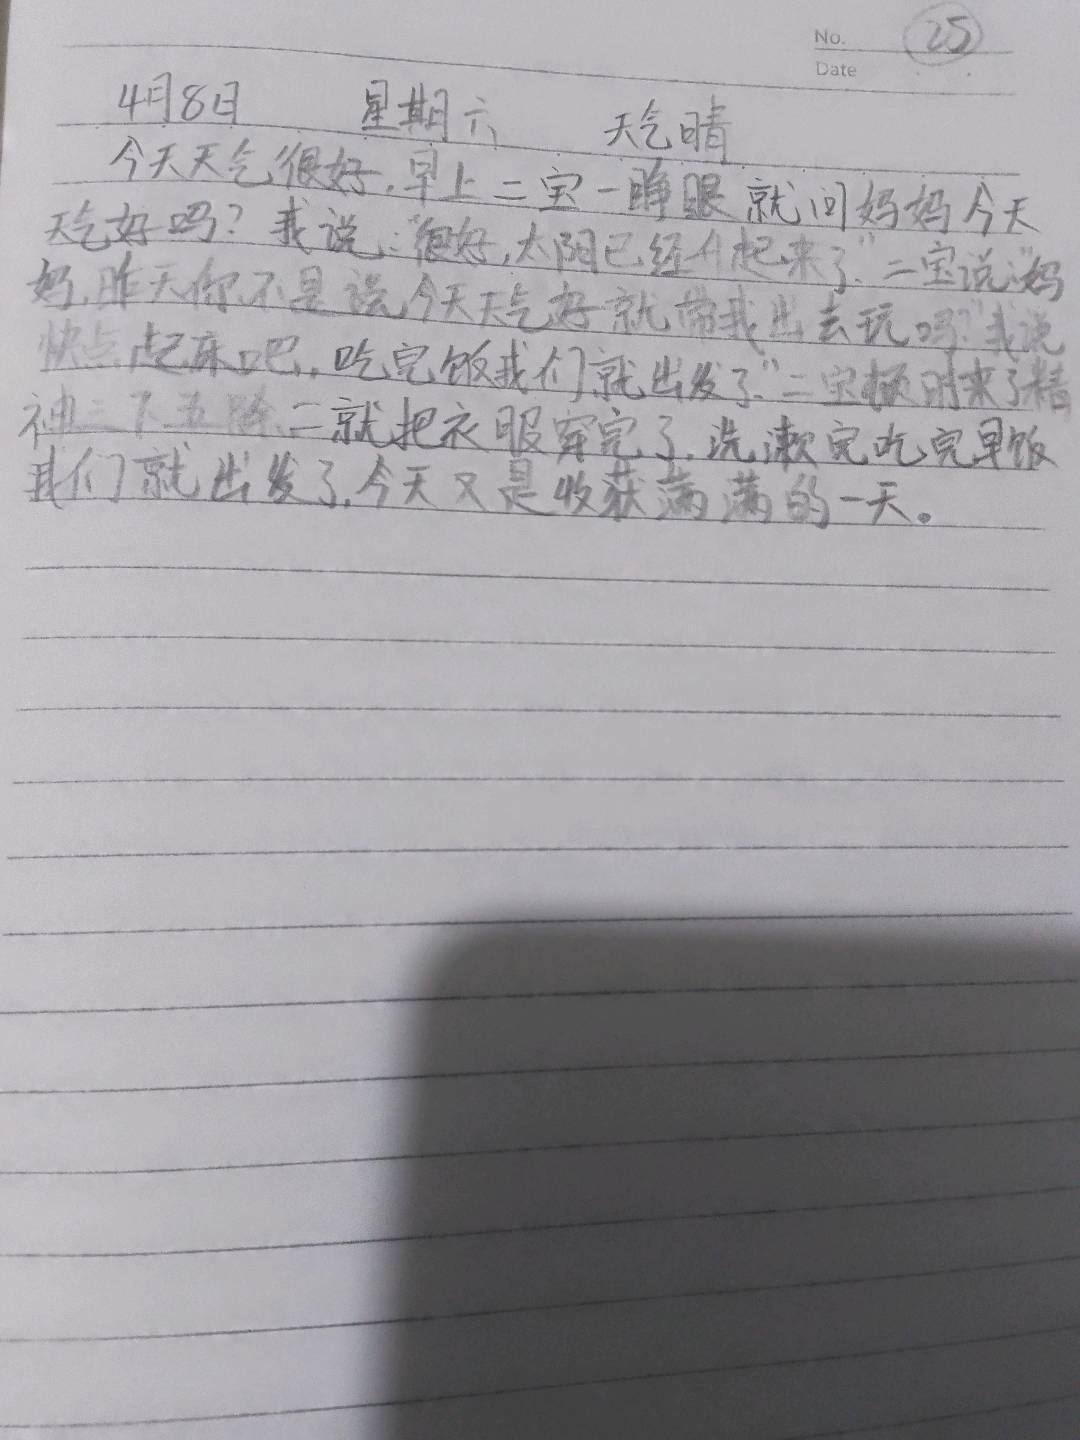 No. 25
Date
4月8日 星期六 天气晴
今天天气很好,早上二宝一睁眼就问妈妈今天
天气好吗?我说:“很好,太阳已经升起来了.”二宝说:“妈
妈,昨天你不是说今天天气好就带我出去玩吗?”我说
快点起床吧,吃完饭我们就出发了.”二宝顿时来了精
神三下五除二就把衣服穿完了,洗漱完吃完早饭
我们就出发了,今天又是收获满满的一天。